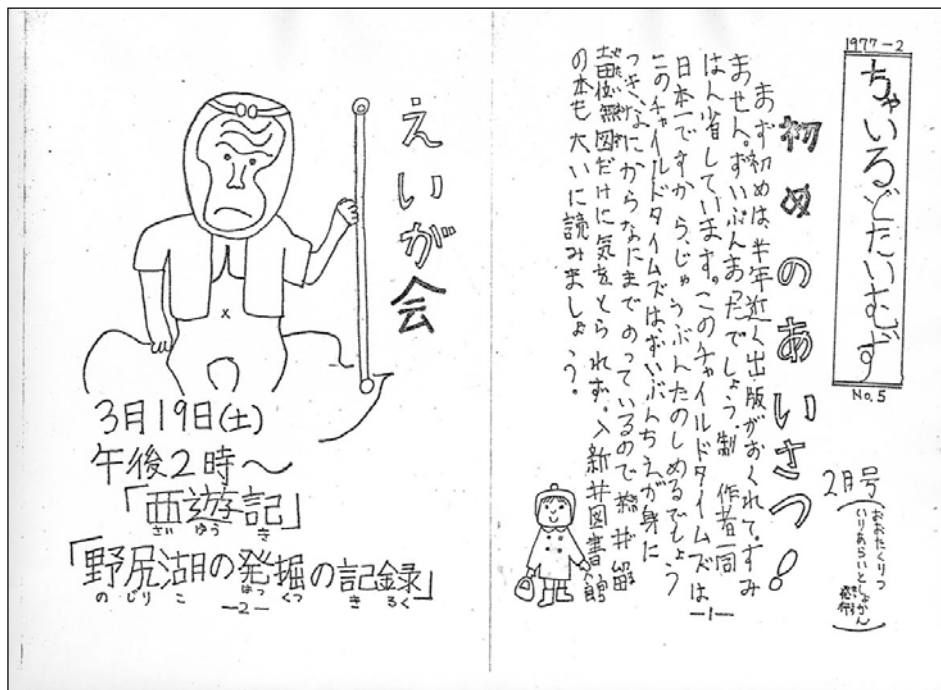 1977-2
ちゃいるどたいむず
No.5
2月号
(おおたくりつ
いりあらいとしょかん
発行)
初めのあいさつ!
まず初めは、半年近く出版がおくれて。すみ
ません。ずいぶんまったでしょう。制作者一同
はん省しています。このチャイルドタイムズは
日本一ですから、じゅうぶんたのしめるでしょう
このチャイルドタイムズはずいぶんちえが身に
つき、なにからなにまでのっているので
図だけに気をとられず。入新井図書館
の本も大いに読みましょう。
-1-
えいが会
3月19日(土)
午後2時~
「西遊記」
さいゆうき
「野尻湖の発掘の記録」
のじりこ はっくつ きろく
-2-